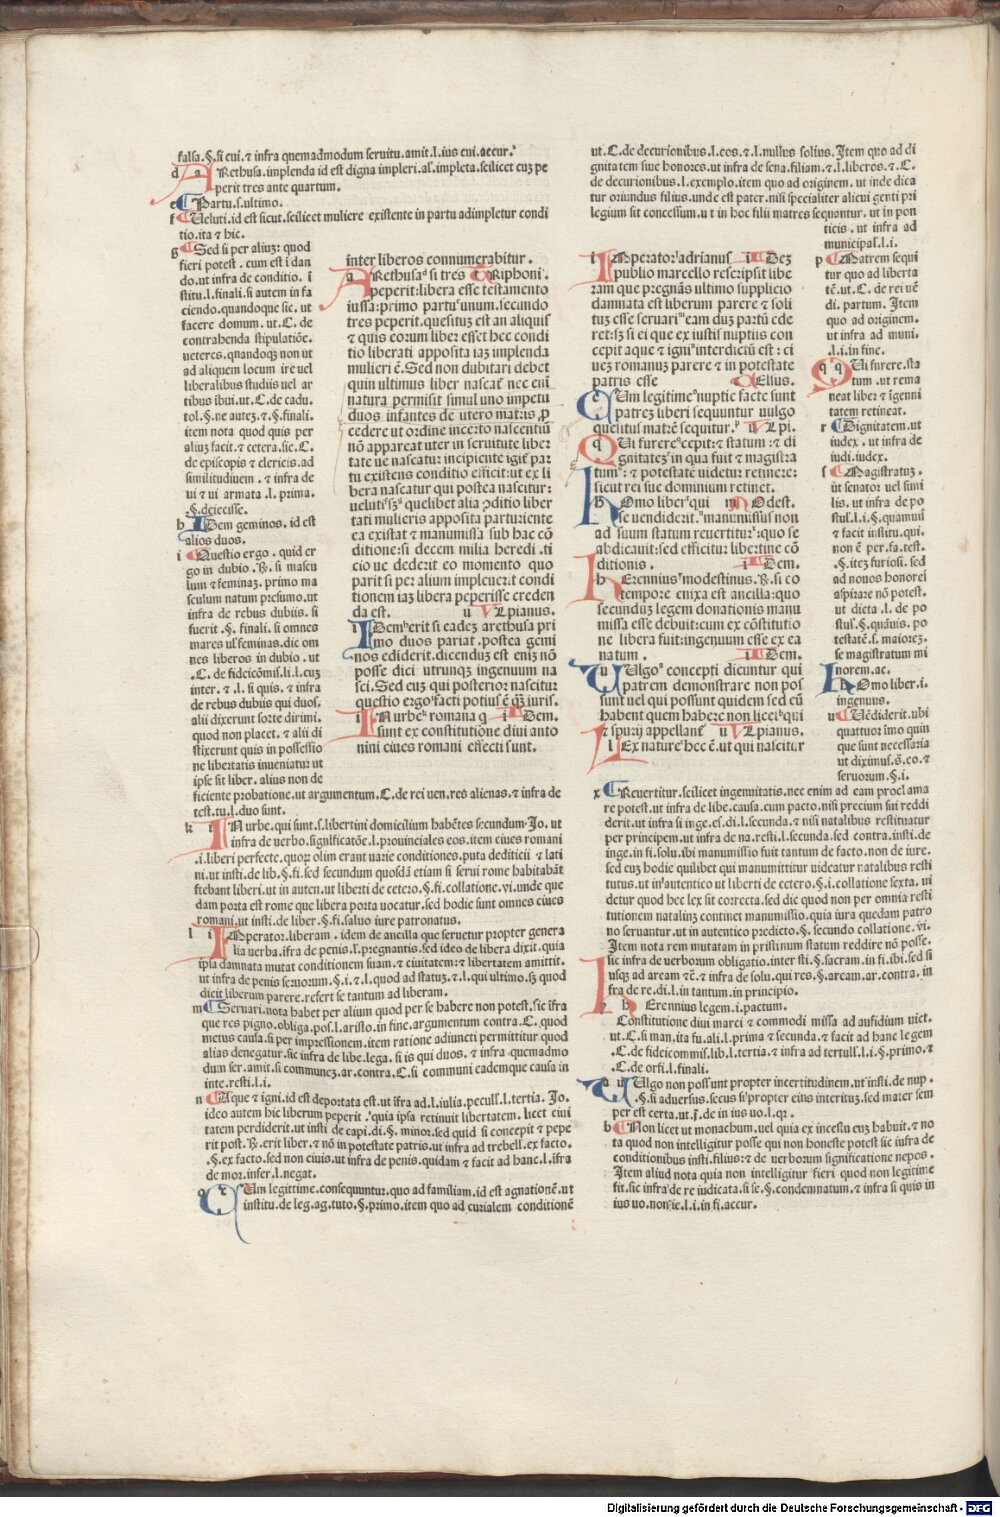 falsa.§.si cui.⁊ infra quemadmodum seruitu.amit.l.ius cui.accur.
d a REthusa.implenda id est digna impleri.al.impleta.scilicet cuz pe
perit tres ante quartum.
e Partu.s.ultimo.
f Ueluti.id est sicut.scilicet muliere existente in partu adimpletur condi
tio.ita ⁊ hic.
g Sed si per aliuz: quod
fieri potest. cum est i dan
do.ut infra de conditio. i
stitu.l.finali.si autem in fa
ciendo.quandoque sic. ut
facere domum.ut.C.de
contrahenda stipulatiõe.
ueteres.quandoqz non ut
ad aliquem locum ire uel
liberalibus studiis uel ar
tibus ibui.ut.C.de cadu.
tol.§.ne autez.⁊.§.finali.
item nota quod quis per
aliuz facit.⁊ cetera.sic.C.
de episcopis ⁊ clericis.ad
similitudinem.⁊ infra de
ui ⁊ ui armata.l.prima.
§.deiecisse.
h IDem geminos.id est
alios duos.
i Questio ergo. quid er
go in dubio.R.si mascu
lum ⁊ feminaz. primo ma
sculum natum presumo.ut
infra de rebus dubiis.si
fuerit.§.finali.si omnes
mares ul'feminas.dic om
nes liberos in dubio.ut
.C.de fideicõmis.li.l.cuz
inter.⁊.l.si quis.⁊ infra
de rebus dubiis qui duos.
alii dixerunt sorte dirimi.
quod non placet.⁊ alii di
stixerunt quis in possessio
ne libertatis inueniatur ut
ipse sit liber. alius non de
ficiente probatione.ut argumentum.C.de rei uen.res alienas.⁊ infra de
test.tu.l.duo sunt.
k i N urbe.qui sunt.s.libertini domicilium habẽtes secundum.Jo.ut
infra de uerbo.significatõe.l.prouinciales eos.item ciues romani
.i.liberi perfecte.quorum olim erant uarie conditiones.puta dediticii ⁊ lati
ni.ut insti.de lib.§.fi.sed secundum quosdã etiam si serui rome habitabãt
siebant liberi.ut in auten.ut liberti de cetero.§.fi.collatione.vi.unde que
dam porta est rome que libera porta uocatur.sed hodie sunt omnes ciues
romani.ut insti.de liber.§.fi.saluo iure patronatus.
l i Mperator.liberam. idem de ancilla que seruetur propter genera
lia uerba.ifra de penis.l'.pregnantis.sed ideo de libera dixit.quia
ipsa damnata mutat conditionem suam.⁊ ciuitatem:⁊ libertatem amittit.
ut infra de penis seruorum.§.i.⁊.l.quod ad statuz.⁊.l.qui ultimo.sz quod
dicit liberum parere.refert se tantum ad liberam.
m Seruari.nota habet per alium quod per se habere non potest.sic ifra
que res pigno.obliga.pos.l.aristo.in fine.argumentum contra.C.quod
metus causa.si per impressionem.item ratione adiuncti permittitur quod
alias denegatur.sic infra de libe.lega.si is qui duos.⁊ infra quemadmo
dum ser.amit.si communez.ar.contra.C.si communi eademque causa in
inte.resti.l.i.
n Aque ⁊ igni.id est deportata est.ut ifra ad.l.iulia.pecul'.l.tertia. Jo.
ideo autem hic liberum peperit.quia ipsa retinuit libertatem. licet ciui
tatem perdiderit.ut insti de capi.di.§. minor.sed quid si concepit ⁊ pepe
rit post.R.erit liber.⁊ nõ in potestate patris.ut infra ad trebell'.ex facto.
.§.ex facto.sed non ciuis.ut infra de penis.quidam ⁊ facit ad hanc.l.ifra
de mor.infer.l.negat.
o c Um legittime.consequuntur.quo ad familiam.id est agnationẽ.ut
institu.de leg.ag.tuto.§.primo.item quo ad curialem conditionẽ
inter liberos connumerabitur.
a REthusa si tres TRiphoni.
peperit:libera esse testamento
iussa:primo partu unum.secundo
tres peperit.quesituz est an aliquis
⁊ quis eorum liber esset hec condi
tio libertati apposita iaz implenda
mulieri ẽ.Sed non dubitari debet
quin ultimus liber nascat nec eni
natura permisit simul uno impetu
duos infantes de utero matris p
cedere ut ordine incerto nascentiũ
nõ appareat uter in seruitute liber
tate ue nascatur incipiente igit par
tu existens conditio efficit:ut ex li
bera nascatur qui postea nascitur:
ueluti si quelibet alia ɔditio liber
tati mulieris apposita parturiente
ea existat ⁊ manumissa sub hac cõ
ditione:si decem milia heredi.ti
cio ue dederit eo momento quo
parit si per alium impleuerit condi
tionem iaz libera peperisse creden
da est. u Vlpianus.
i Dem erit si eadez arethusa pri
mo duos pariat.postea gemi
nos ediderit.dicenduz est enim nõ
posse dici utrunqz ingenuum na
sci.Sed euz qui posterior nascitur
questio ergo facti potius ẽ qz iuris.
i N urbe romana q i Dem.
sunt ex constitutione diui anto
nini ciues romani effecti sunt.
ut.C.de decurionibus.l.eos.⁊.l.nullus solius.Item quo ad di
gnitatem siue honores.ut infra de sena.filiam.⁊.l.liberos.⁊.C.
de decurionibus.l.exemplo.item quo ad originem.ut inde dica
tur oriundus filius.unde est pater.nisi specialiter alicui genti pri
legium sit concessum.ut in hoc filii matres sequantur.ut in pon
ticis. ut infra ad
municipal'.l.i.
i Mperator adrianus i Dez
publio marcello rescripsit libe
ram que pregnãs ultimo supplicio
damnata est liberum parere ⁊ soli
tuz esse seruari eam duz partũ ede
ret:sz si ei que ex iustis nuptiis con
cepit aque ⁊ igni interdictũ est: ci
uez romanuz parere ⁊ in potestate
patris esse CElsus.
c Um legitime nuptie facte sunt
patrez liberi sequuntur uulgo
quesitus matrẽ sequitur. u Vlpi.
q Ui furere cepit:⁊ statum:⁊ di
gnitatez in qua fuit ⁊ magistra
tum:⁊ potestatẽ uidetur retinere:
sicut rei sue dominium retinet.
h Omo liber qui m Odest.
se uendiderit.manumissus non
ad suum statum reuertitur:quo se
abdicauit:sed efficitur libertine cõ
ditionis. i Dem.
h Erennius modestinus.R.si eo
tempore enixa est ancilla:quo
secunduz legem donationis manu
missa esse debuit:cum ex cõstitutio
ne libera fuit:ingenuum esse ex ea
natum. i Dem.
u Ulgo concepti dicuntur qui
patrem demonstrare non pos
sunt uel qui possunt quidem sed eũ
habent quem habere non licet qui
⁊ spurij appellant u Vlpianus.
l Ex nature hec ẽ.ut qui nascitur
p Matrem sequi
tur quo ad liberta
tẽ.ut.C.de rei uẽ
di. partum. Item
quo ad originem.
ut infra ad muni.
.l.i.in fine.
q q Ui furere.sta
tum.ut rema
neat liber ⁊ igenni
tatem retineat.
r Dignitatem.ut
iudex. ut infra de
iudi.iudex.
s Magistratuz.
ut senator uel simi
lis. ut infra de po
stul'.l.i.§.quamuis
⁊ facit institu.qui.
non ẽ per.fa.test.
.§.itez furiosi.sed
ad nouos honores
aspirare nõ potest.
ut dicta.l.de po
stul'.§.quãuis.po
testatẽ.s.maiorez.
se magistratum mi
norem.ac.
h Omo liber.i.
ingenuus.
u Uẽdiderit.ubi
quattuor imo quin
que sunt necessaria
ut diximus.s̃.eo.⁊
seruorum.§.i.
x Reuertitur.scilicet ingenuitatis.nec enim ad eam proclama
re potest.ut infra de libe.causa.cum pacto.nisi precium sui reddi
derit.ut infra si inge.es.di.l.secunda.⁊ nisi natalibus restituatur
per principem.ut infra de na.resti.l.secunda.sed contra.insti.de
inge.in fi.solu.ibi manumissio fuit tantum de facto.non de iure.
sed cuz hodie quilibet qui manumittitur uideatur natalibus resti
tutus.ut in autentico ut liberti de cetero.§.i.collatione sexta. ui
detur quod hec lex sit correcta.sed dic quod non per omnia resti
tutionem natalium continet manumissio.quia iura quedam patro
no seruantur.ut in autentico predicto.§. secundo collatione.vi.
Item nota rem mutatam in pristinum statum reddire nõ posse.
sic infra de uerborum obligatio.inter sti.§.sacram.in fi.ibi.sed si
usqz ad aream rẽ.⁊ infra de solu.qui res.§.aream.ar.contra. in
fra de re.di.l.in tantum.in principio.
h Erennius legem.i.pactum.
Constitutione diui marci ⁊ commodi missa ad aufidium uict.
ut.C.si man.ita fu.ali.l.prima ⁊ secunda.⁊ facit ad hanc legem
.C.de fideicommis.lib.l.tertia.⁊ infra ad tertull'.l.i.§.primo.⁊
.C.de orfi.l.finali.
a u Ulgo non possunt propter incertitudinem.ut insti.de nup.
.§.si aduersus.secus si propter eius interituz.sed mater sem
per est certa.ut.j̃.de in ius uo.l.qz.
b Non licet ut monachum.uel quia ex incestu euz habuit.⁊ no
ta quod non intelligitur posse qui non honeste potest sic infra de
conditionibus insti.filius:⁊ de uerborum significatione nepos.
Item aliud nota quia non intelligitur fieri quod non legitime
fit.sic infra de re iudicata.si se.§.condemnatum.⁊ infra si quis in
ius uo.non ie.l.i.in fi.accur.
Digitalisierung gefördert durch die Deutsche Forschungsgemeinschaft - DFG